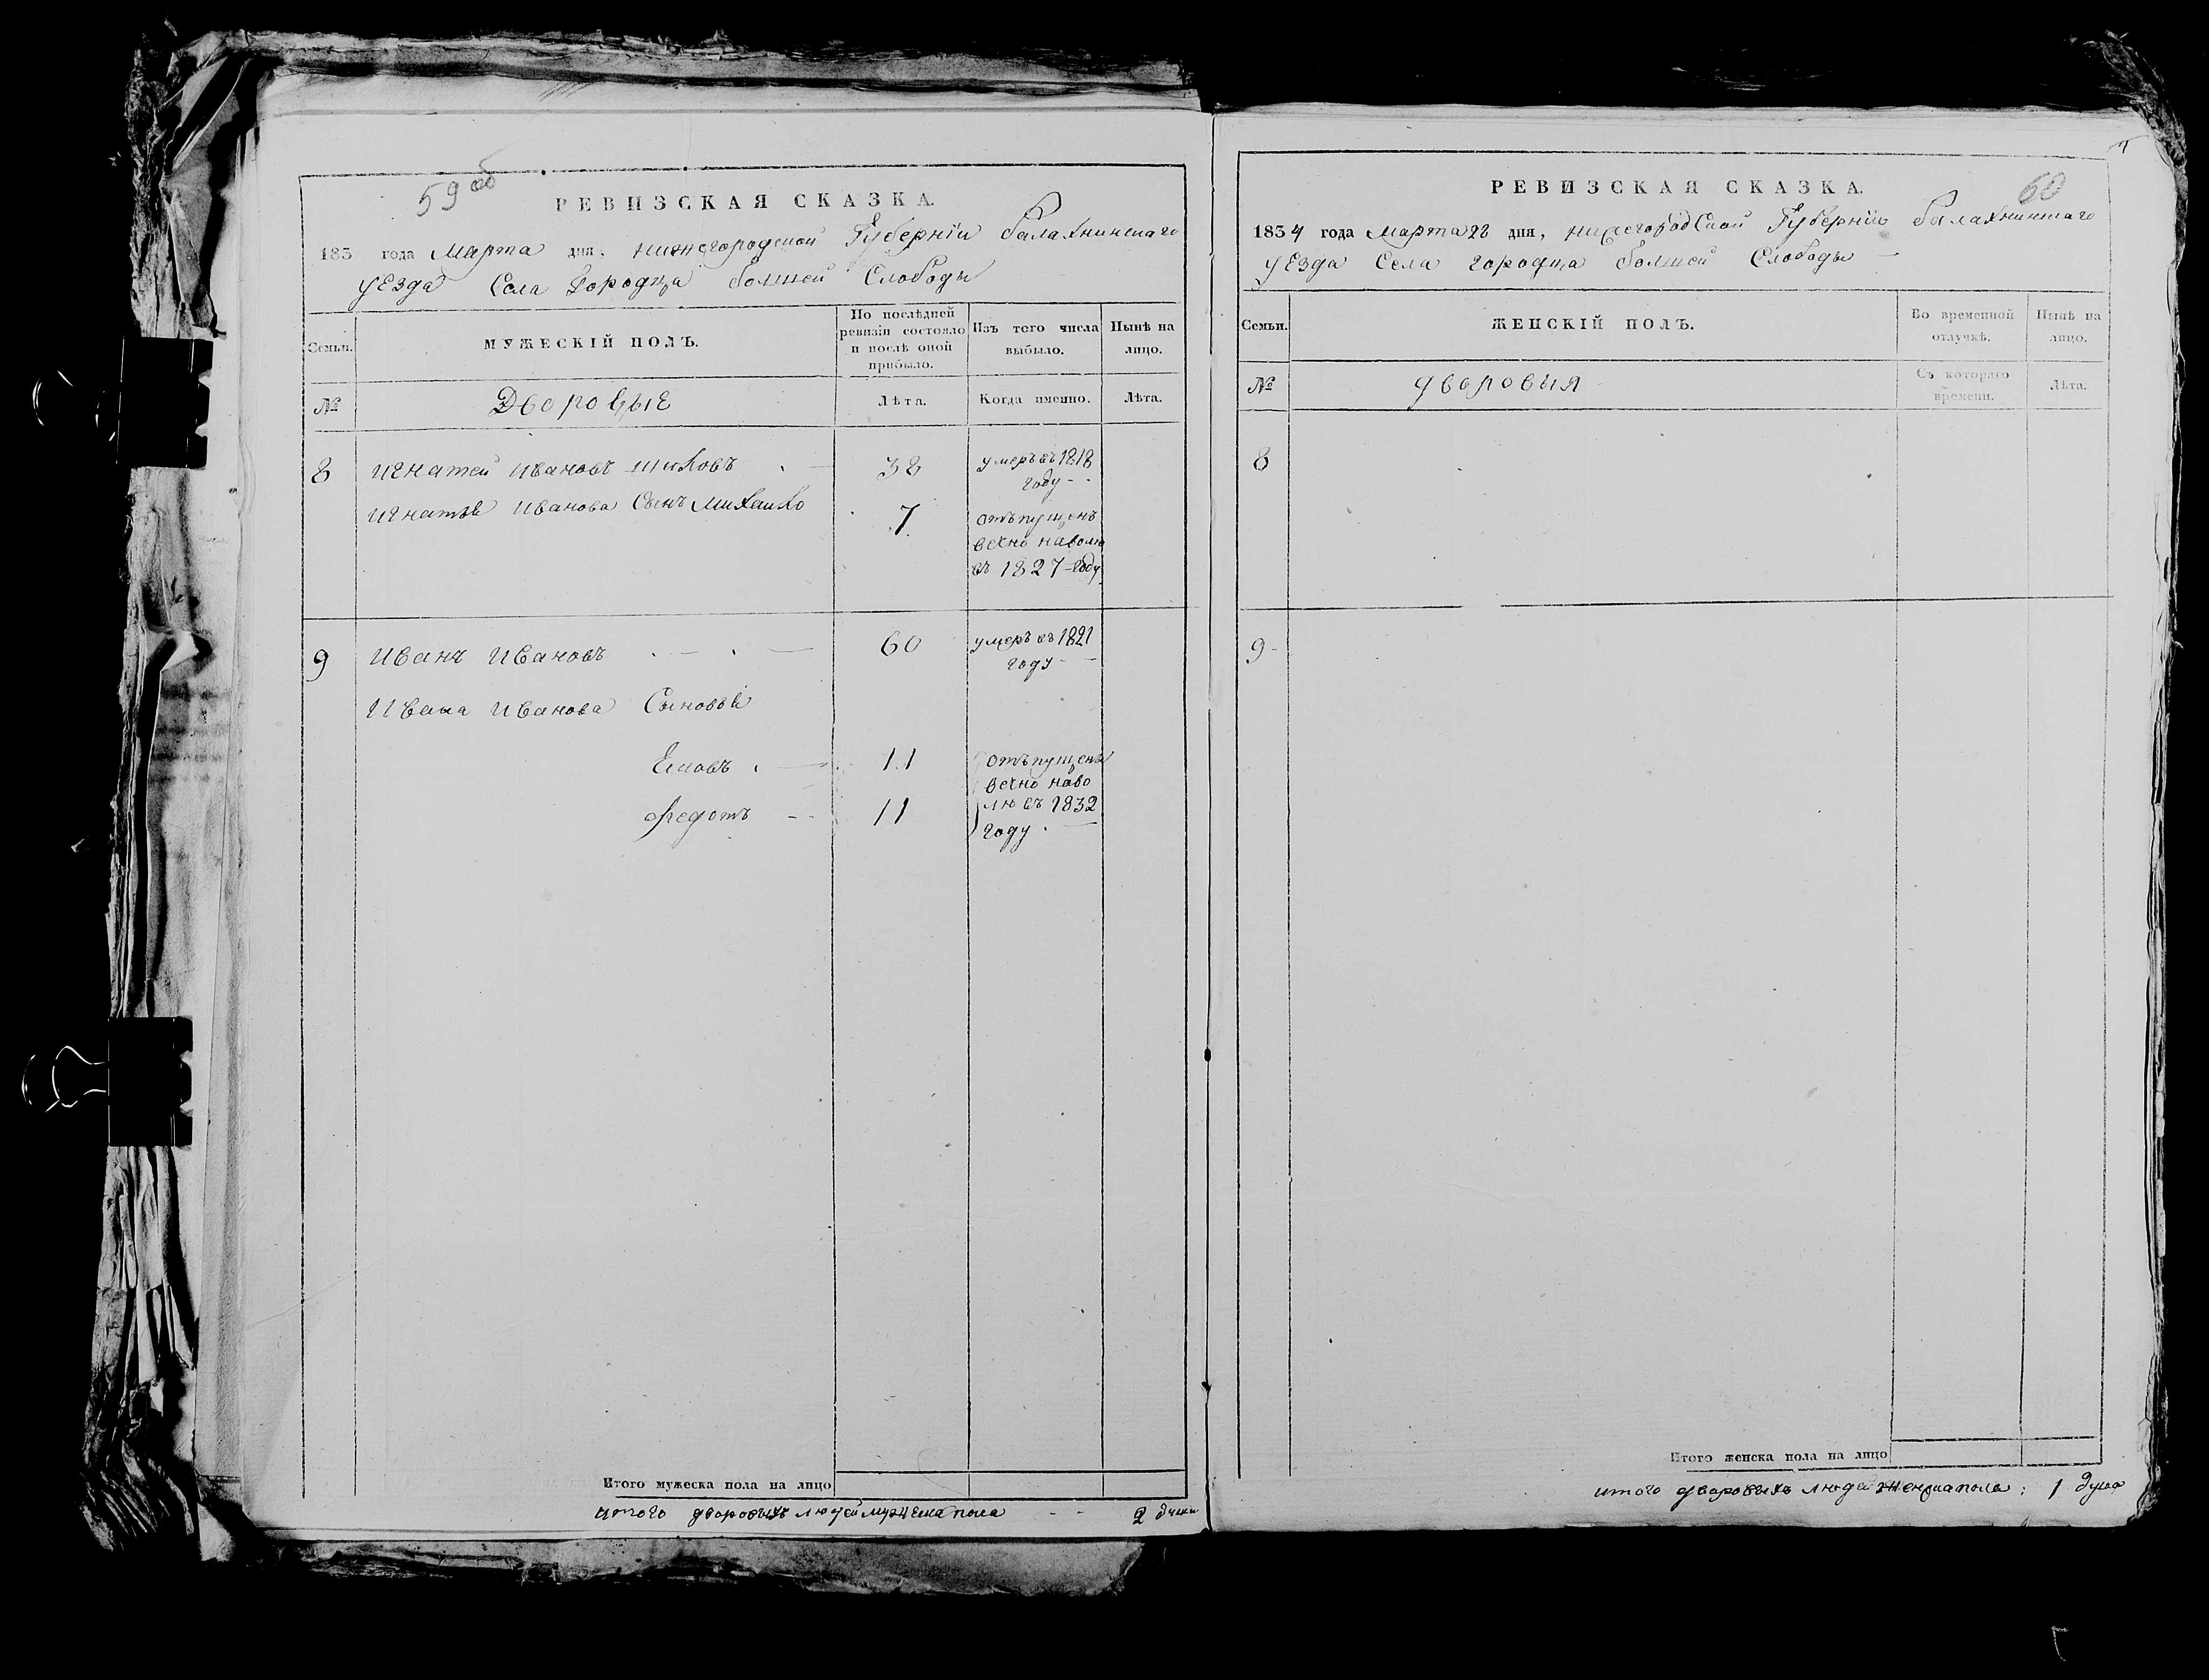 59 об
РЕВИЗСКАЯ СКАЗКА.
183 года Марта дня, нижегородской Губерніи балахнинскаго
уЕзда Села Городца болшей Слободы
Семьи.
МУЖЕСКІЙ ПОЛЪ.
По послѣдней ревизіи состояло и послѣ оной прибыло.
Изъ того числа выбыло.
Нынѣ на лицо.
№
ДворовыЕ
Лѣта.
Когда именно.
Лѣта.
8 игнатей ивановъ 38 умеръ въ 1818
году
игнатья иванова Сынъ Михайло 7 отъпущенъ
вечно наволю
въ 1827 году
9 иванъ ивановъ 60 умеръ въ 1821
году
Ивана иванова Сыновья
11 отъпущены
вечно наво
федотъ 11 лю въ 1832
году
Итого мужеска пола на лицо
итого дворовыхъ людей мужеска пола 2 души
60
РЕВИЗСКАЯ СКАЗКА.
1834 года марта 28 дня, нижегородСкой Губерніи балахнинскаго
уЕзда Села городца болшей Слободы
Семьи.
ЖЕНСКІЙ ПОЛЪ.
Во временной отлучкѣ.
Нынѣ на лицо.
№
дворовыя
Съ котораго времени.
Лѣта.
8
9
Итого женска пола на лицо
итого дворовыхъ людей женска пола: 1 душа